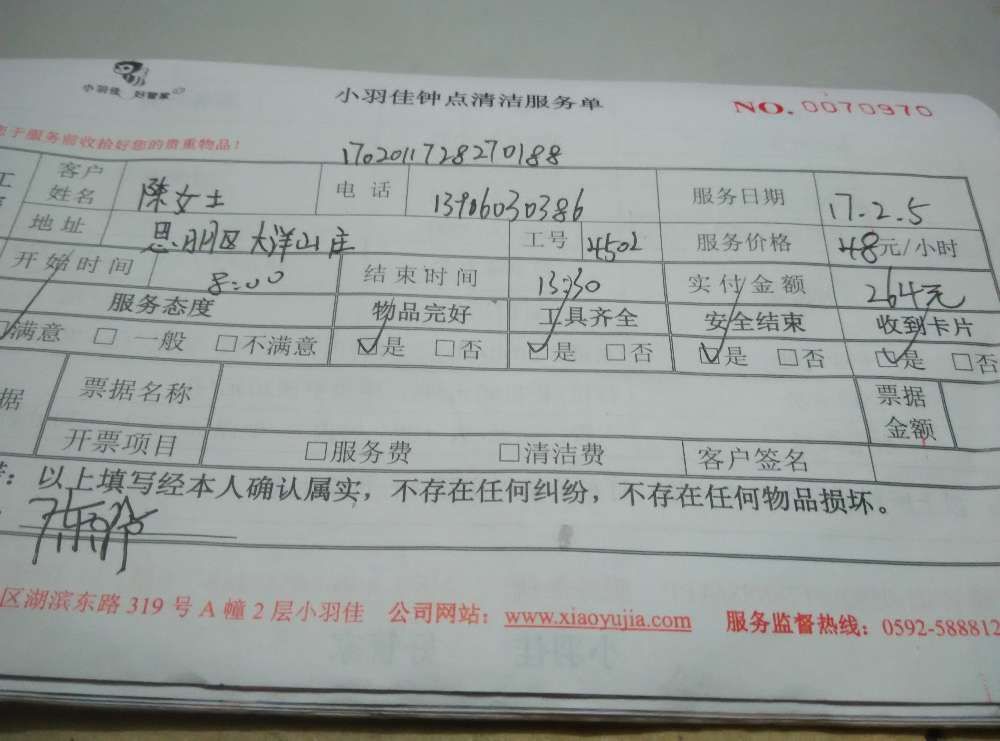 小羽佳 好管家
小羽佳钟点清洁服务单
NO.0070970
您于服务前收拾好您的贵重物品！
1702011728270188
客户姓名 陈女士 电话 13906030386 服务日期 17.2.5
地址 思明区大洋山庄 工号 4502 服务价格 48元/小时
开始时间 8:00 结束时间 13:30 实付金额 264元
服务态度 物品完好 工具齐全 安全结束 收到卡片
满意 □ 一般 □不满意 ☑是 □否 ☑是 □否 ☑是 □否 ☑是 □否
据 票据名称 票据金额
开票项目 □服务费 □清洁费 客户签名
：以上填写经本人确认属实，不存在任何纠纷，不存在任何物品损坏。
区湖滨东路 319 号 A 幢 2 层小羽佳 公司网站：www.xiaoyujia.com 服务监督热线：0592-588812